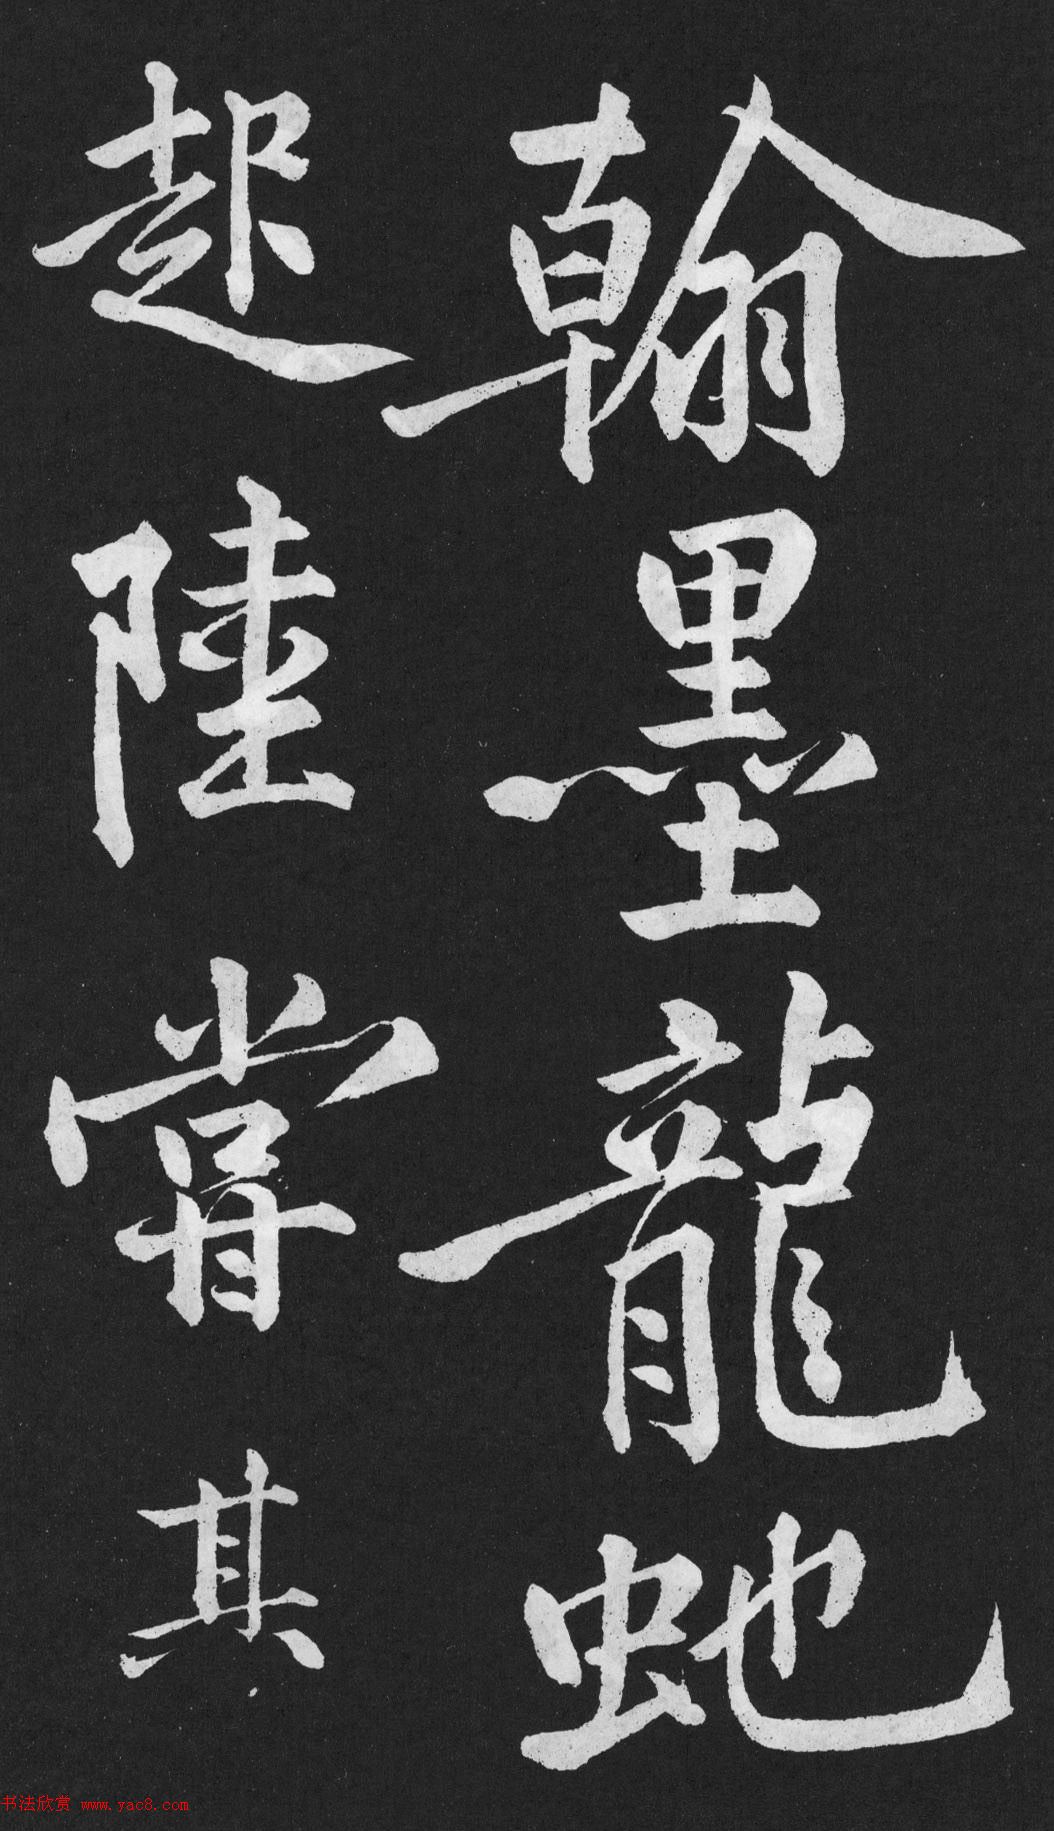 翰墨龍虵
起陸嘗其
书法欣赏 www.yac8.com